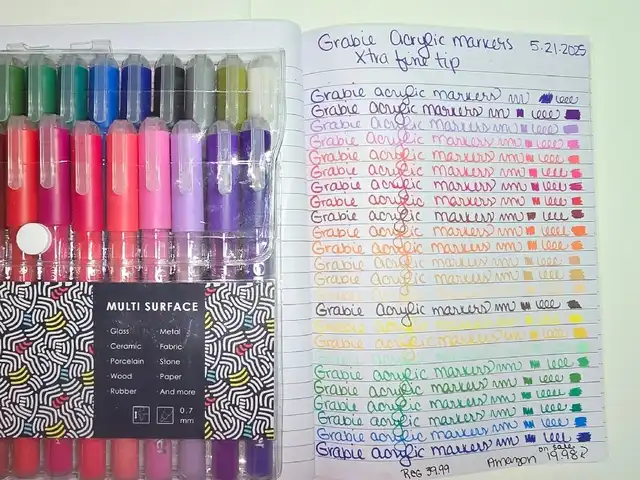 MULTI SURFACE
· Glass · Metal
· Ceramic · Fabric
· Porcelain · Stone
· Wood · Paper
· Rubber · And more
0.7
mm
Grabie Acrylic markers 5.21.2025
Xtra fine tip
Grabie acrylic markers
Grabie acrylic markers
Grabie acrylic markers
Grabie acrylic markers
Grabie acrylic markers
Grabie acrylic markers
Grabie acrylic markers
Grabie acrylic markers
Grabie acrylic markers
Grabie acrylic markers
Grabie acrylic markers
Grabie acrylic markers
Grabie acrylic markers
Grabie acrylic markers
Grabie acrylic markers
Grabie acrylic markers
Grabie acrylic markers
Grabie acrylic markers
Grabie acrylic markers
Grabie acrylic markers
Grabie acrylic markers
Grabie acrylic markers
Grabie acrylic markers
Reg 39.99 Amazon on sale 19.98